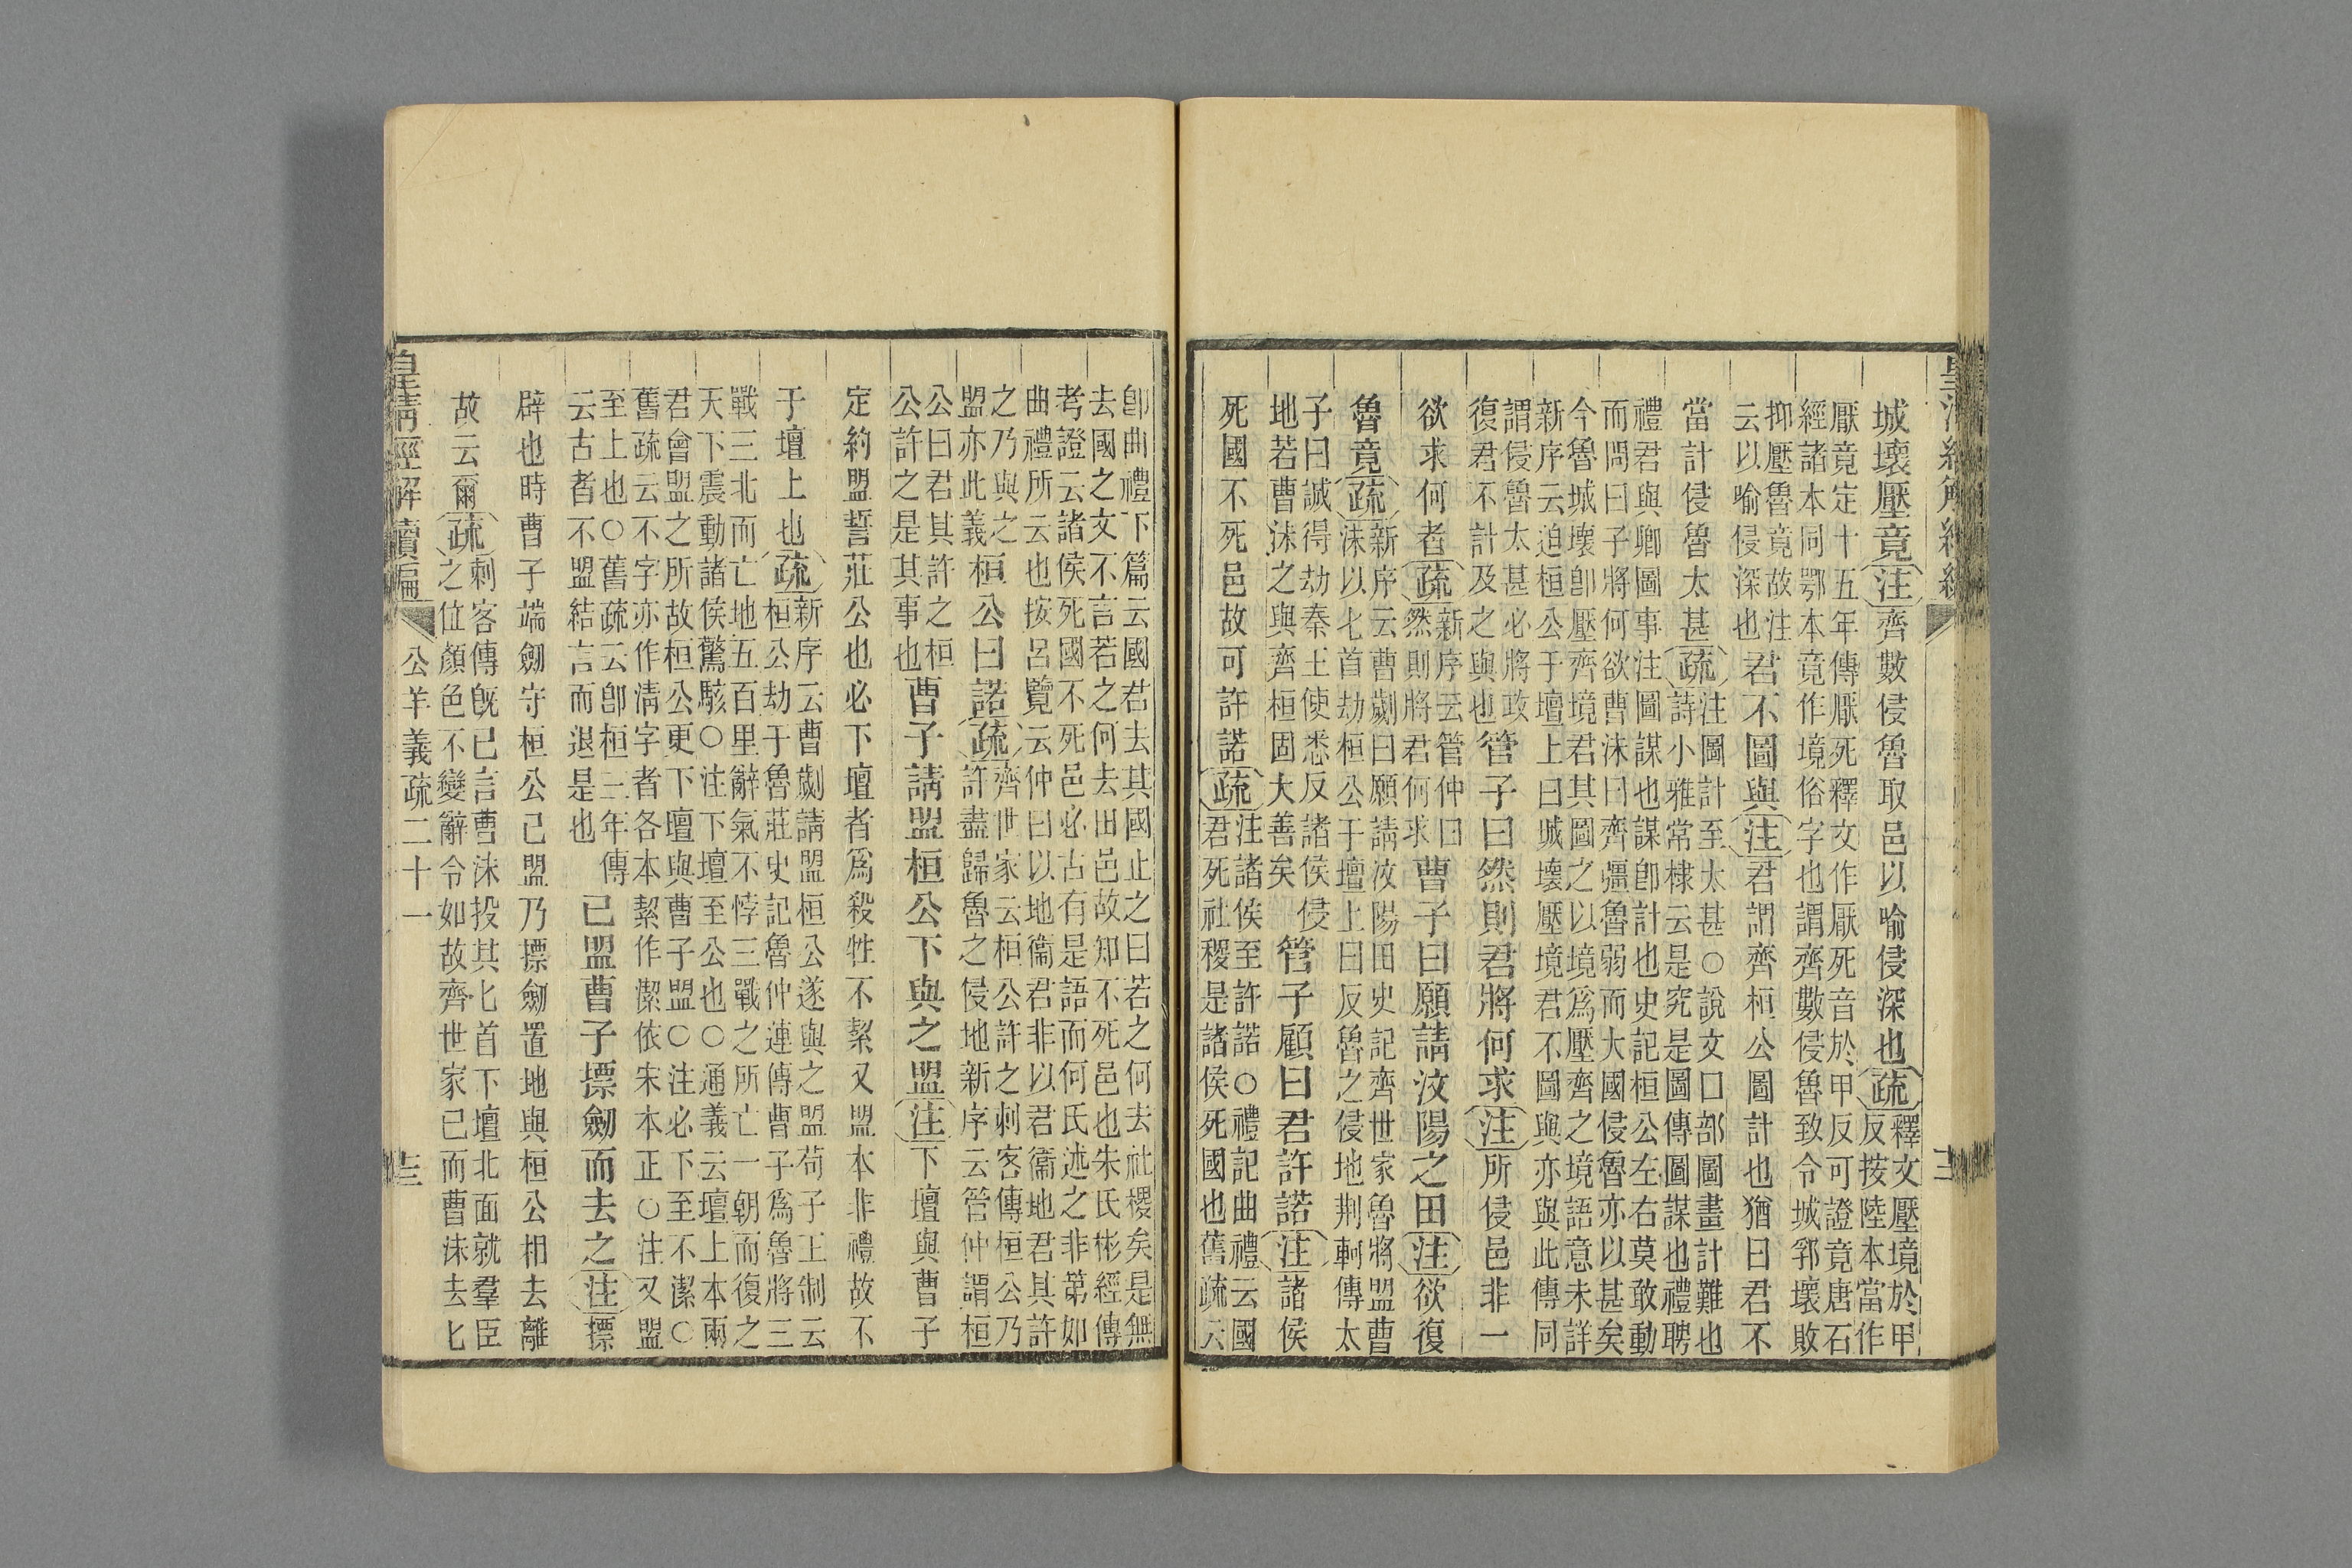 城壞壓竟注齊數侵魯取邑以喻侵深也疏釋文壓境於甲
反按陸本當作
厭竟定十五年傳厭死釋文作厭死音於甲反可證竟唐石
經諸本同鄂本竟作境俗字也謂齊數侵魯致令城郛壞敗
抑壓魯竟故注
云以喻侵深也君不圖與注君謂齊桓公圖計也猶曰君不
當計侵魯太甚疏注圖計至太甚○說文囗部圖畫計難也
詩小雅常棣云是究是圖傳圖謀也禮聘
禮君與卿圖事注圖謀也謀卽計也史記桓公左右莫敢動
而問曰子將何欲曹沫曰齊彊魯弱而大國侵魯亦以甚矣
今魯城壞卽壓齊境君其圖之以境爲壓齊之境語意未詳
新序云迫桓公于壇上曰城壞壓境君不圖與亦與此傳同
謂侵魯太甚必將政
復君不計及之與也管子曰然則君將何求注所侵邑非一
欲求何者疏新序云管仲曰
然則將君何求曹子曰願請汶陽之田注欲復
魯竟疏新序云曹劌曰願請汶陽田史記齊世家魯將盟曹
沫以匕首劫桓公于壇上曰反魯之侵地荆軻傳太
子曰誠得劫秦王使悉反諸侯侵
地若曹沫之與齊桓固大善矣管子顧曰君許諾注諸侯
死國不死邑故可許諾疏注諸侯至許諾○禮記曲禮云國
君死社稷是諸侯死國也舊疏云
卽曲禮下篇云國君去其國止之曰若之何去社稷矣是無
去國之文不言若之何去田邑故知不死邑也朱氏彬經傳
考證云諸侯死國不死邑必古有是語而何氏述之非第如
曲禮所云也按呂覽云仲曰以地衞君非以君衞地君其許
之乃與之
盟亦此義桓公曰諾疏齊世家云桓公許之刺客傳桓公乃
許盡歸魯之侵地新序云管仲謂桓
公曰君其許之桓
公許之是其事也曹子請盟桓公下與之盟注下壇與曹子
定約盟誓莊公也必下壇者爲殺牲不絜又盟本非禮故不
于壇上也疏新序云曹劌請盟桓公遂與之盟荀子王制云
桓公劫于魯莊史記魯仲連傳曹子爲魯將三
戰三北而亡地五百里辭氣不悖三戰之所亡一朝而復之
天下震動諸侯驚駭○注下壇至公也○通義云壇上本兩
君會盟之所故桓公更下壇與曹子盟○注必下至不潔○
舊疏云不字亦作清字者各本絜作潔依宋本正○注又盟
至上也○舊疏云卽桓三年傳
云古者不盟結言而退是也已盟曹子摽劒而去之注摽
辟也時曹子端劒守桓公已盟乃摽劒置地與桓公相去離
故云爾疏刺客傳旣已言曹沫投其匕首下壇北面就羣臣
之位顏色不變辭令如故齊世家已而曹沫去匕
皇清經解續編 公羊義疏二十一 十三